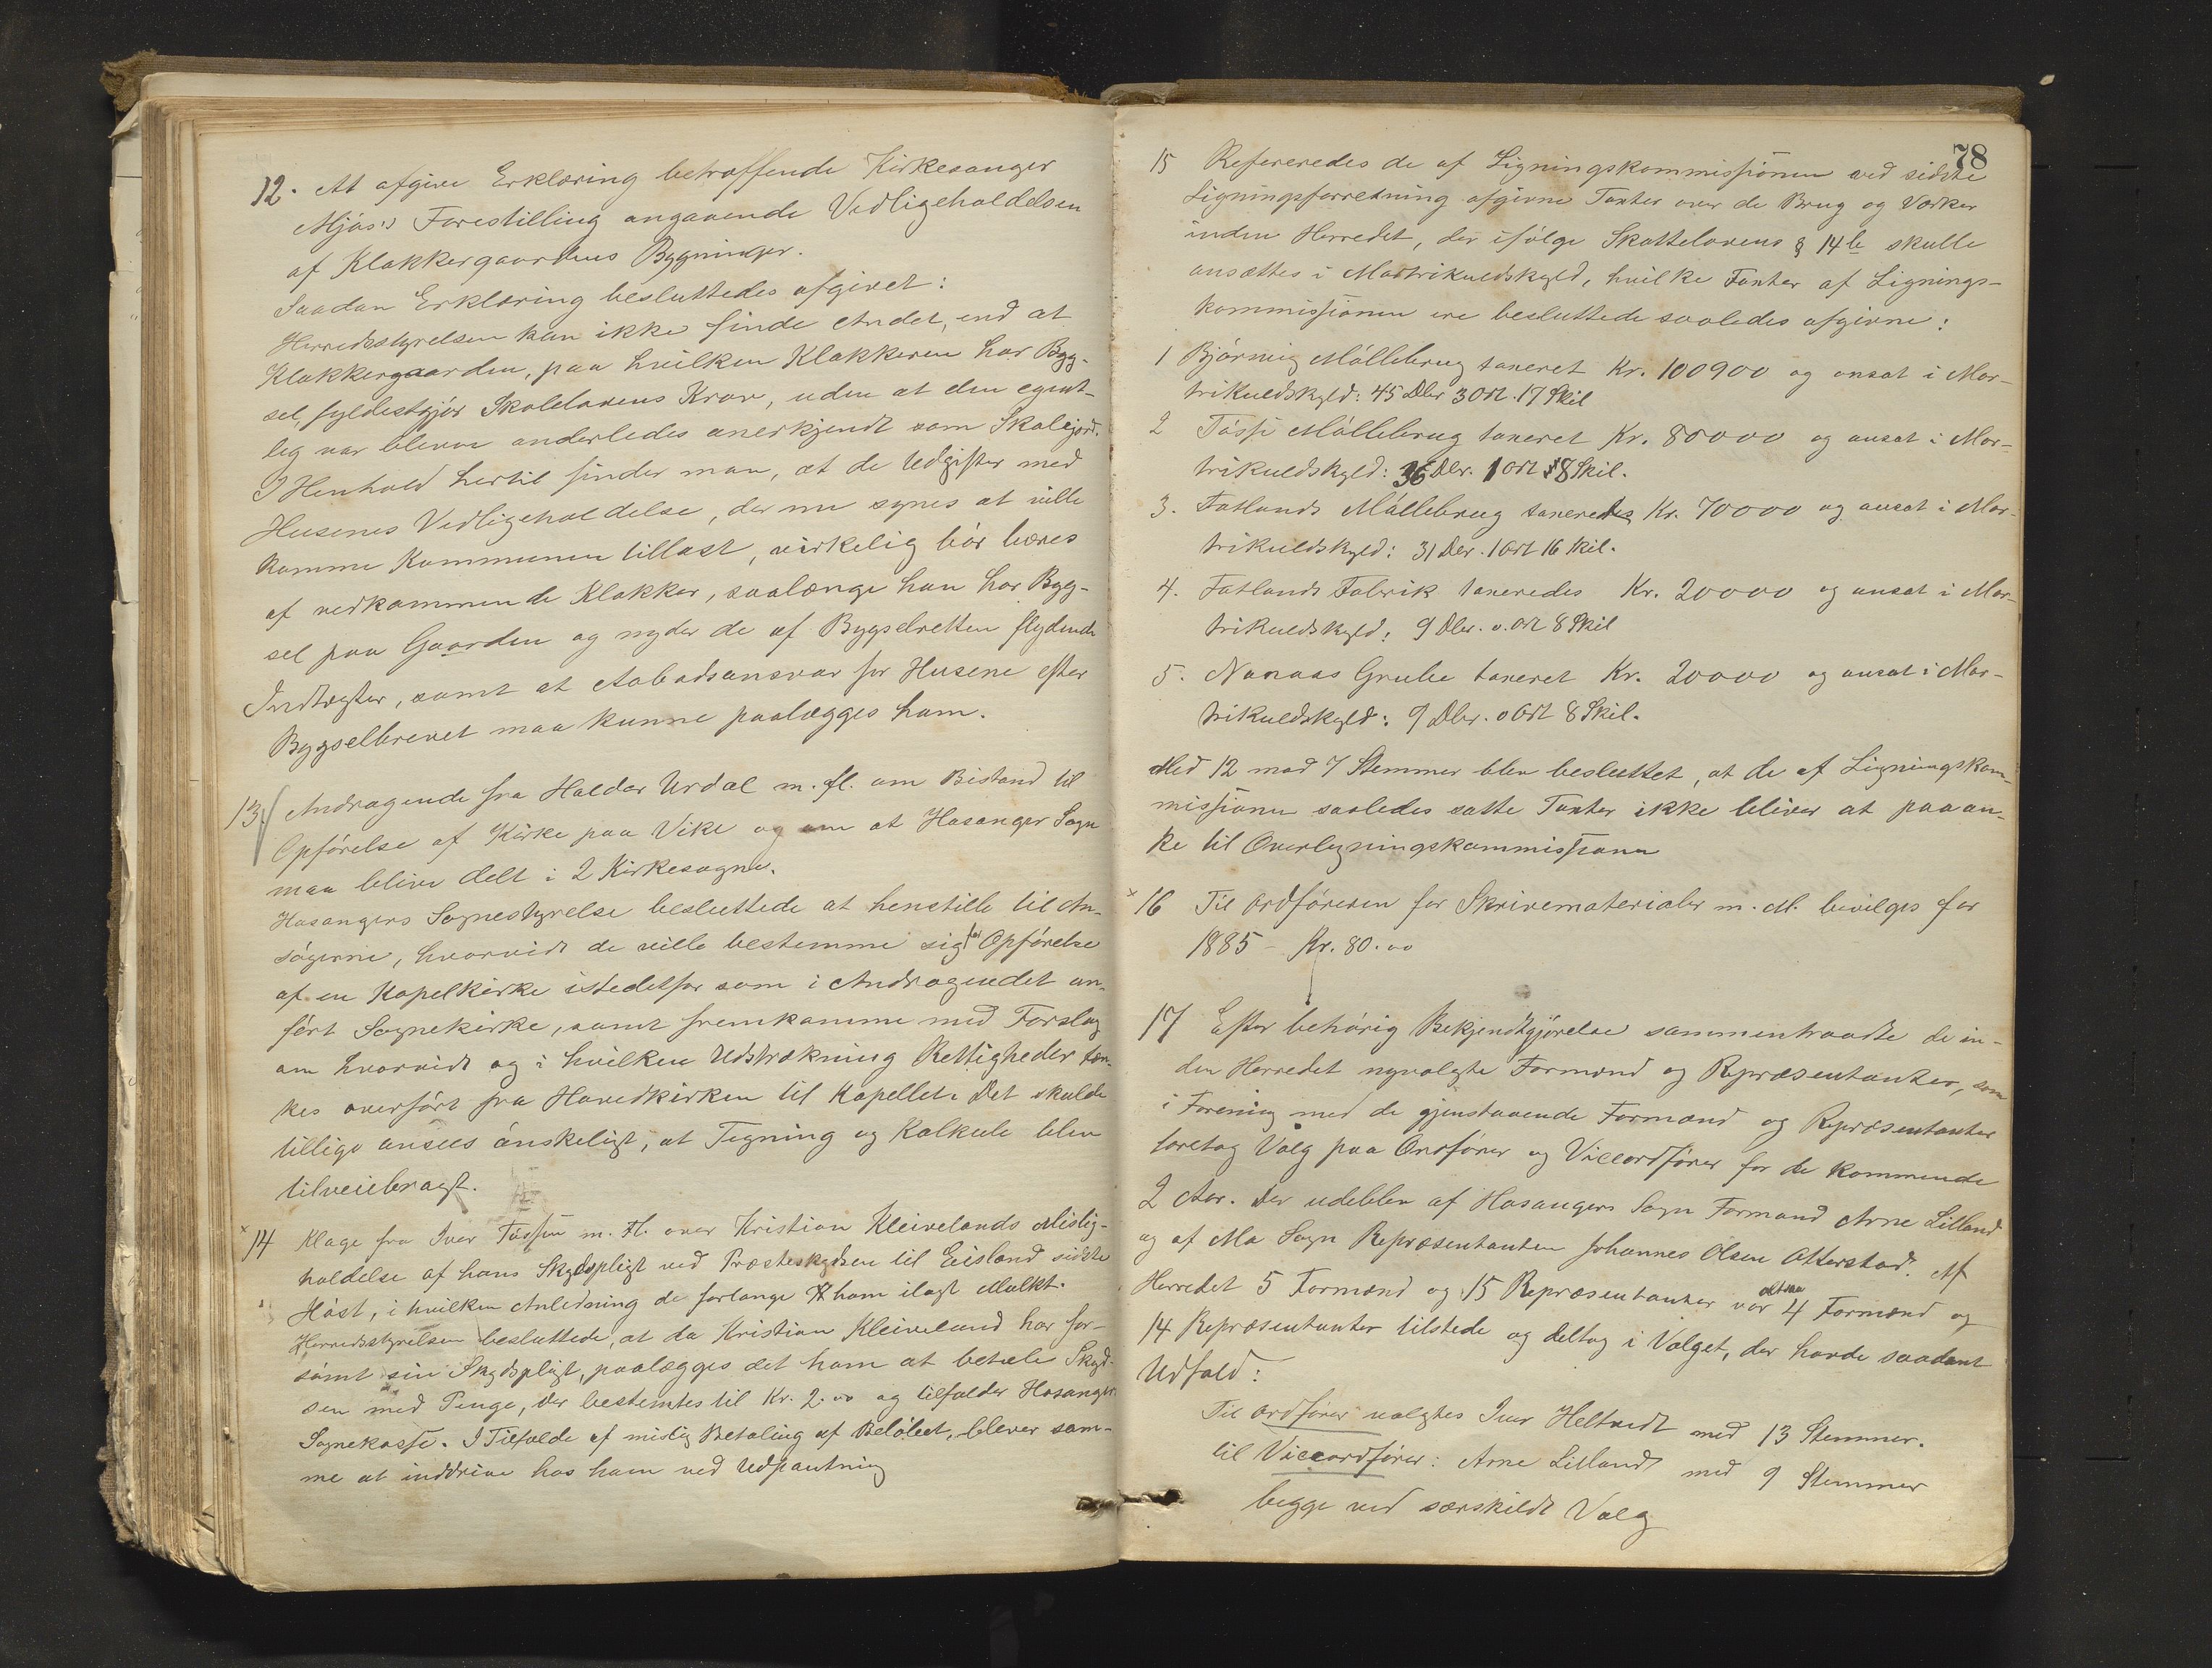 12. At afgive Erklæring betræffende Kirkesanger
Mjøs's Forestilling angaaende Vedligeholdelsen
af Klokkergaardens Bygninger.
Saadan Erklæring besluttedes afgivet:
Herredsstyrelsen kan ikke finde Andet, end at
Klokkergaarden, paa hvilken Klokkeren har Byg-
sel, fyldestgjør Skoleloven​s Krav, uden at den egent-
lig var bleven anderledes anerkjendt som Skolejord.
I Henhold hertil finder man, at de Udgifter med
Husenes Vedligeholdelse, der nu synes at ville
komme Kommunen tillast, virkelig bør bæres
af vedkommende Klokker, saalænge han har Byg-
sel paa Gaarden og nyder de af Bygselretten flydende
Indtægter, samt at Aabodsansvar for Husene efter
Bygselbrevet maa kunne paalægges ham.
13 Andragende fra Haldor Urdal m. fl. om Bistand til
Opførelse af Kirke paa Vike og om at Hosanger Sogn
maa blive delt i 2 Kirkesogne.
Hosangers Sognestyrelse besluttede at henstille til An-
søgerne, hvorvidt de ville bestemme sig for Opførelse
af en Kapelkirke istedetfor som i Andragendet an-
ført Sognekirke, samt fremkomme med Forslag
om hvorvidt og i hvilken Udstrækning Rettigheder tæn-
kes overført fra Hovedkirken til Kapellet. Det skulde
tillige ansees ønskeligt, at Tegning og Kalkule blev
tilveiebragt.
× 14 Klage fra Iver Tøssen m. Fl. over Kristian Kleivelands Mislig-
holdelse af hans Skydspligt ved Præsteskydsen til Eisland sidste
Høst, i hvilken Anledning de forlange ham ilagt Mulkt.
Herredsstyrelsen besluttede, at da Kristian Kleiveland har for-
sømt sin Skydspligt, paalægges det ham at betale Skyd-
sen med Penge, der bestemtes til Kr. 2.00 og tilfalder Hosanger
Sognekasse. I Tilfælde af mislig Betaling af Beløbet, bliver sam-
me at inddrive hos ham ved Udpantning
78
15 Refereredes de af Ligningskommissionen ved sidste
Ligningsforretning afgivne Taxter over de Brug og Værker
inden Herredet, der ifølge Skattelovens § 14 b skulle
ansættes i Matrikuldskyld, hvilke Taxter af Lignings-
kommissionen ere besluttede saaledes afgivne:
1 Bjørnig Møllebrug taxeret Kr. 100900 og ansat i Ma-
trikuldskyld: 45 Dlr 3 Ort. 17 Skil
2 Tøsse Møllebrug taxeret Kr. 80000 og ansat i Ma-
trikuldskyld: 36 Dlr. 1 Ort 8 Skil.
3. Fatlands Møllebrug taxeredes Kr. 70000 og ansat i Ma-
trikuldskyld: 31 Dlr. 1 Ort 16 Skil.
4. Fatlands Fabrik taxeredes Kr. 20000 og ansat i Ma-
trikuldskyld: 9 Dlr. 0. Ort 8 Skil
5. Nonaas Grube taxeret Kr. 20000 og ansat i Ma-
trikuldskyld: 9 Dlr. 0 Ort 8 Skil.
Med 12 mod 7 Stemmer blev besluttet, at de af Ligningskom-
missionen saaledes satte Taxter ikke bliver at paaan-
ke til Overligningskommissionen
× 16 Til Ordføreren for Skrivematerialer m. M. bevilges for
1885 - Kr. 80.00
17 Efter behørig Bekjendtgjørelse sammentraadte de in-
den Herredet nyvalgte Formænd og Repræsentanter, som
i Forening med de gjenstaaende Formænd og Repræsentanter
foretog Valg paa Ordfører og Viceordfører for de kommende
2 Aar. Der udeblev af Hosangers Sogn Formand Arne Litland
og af Mo Sogn Repræsentanten Johannes Olsen Otterstad. Af
Herredet 5 Formænd og 15 Repræsentanter var altsaa 4 Formænd og
14 Repræsentanter tilstede og deltog i Valget, der havde saadant
Udfald:
Til Ordfører valgtes Iver Heltvedt med 13 Stemmer.
til Viceordfører: Arne Litland med 9 Stemmer
begge ved særskildt Valg